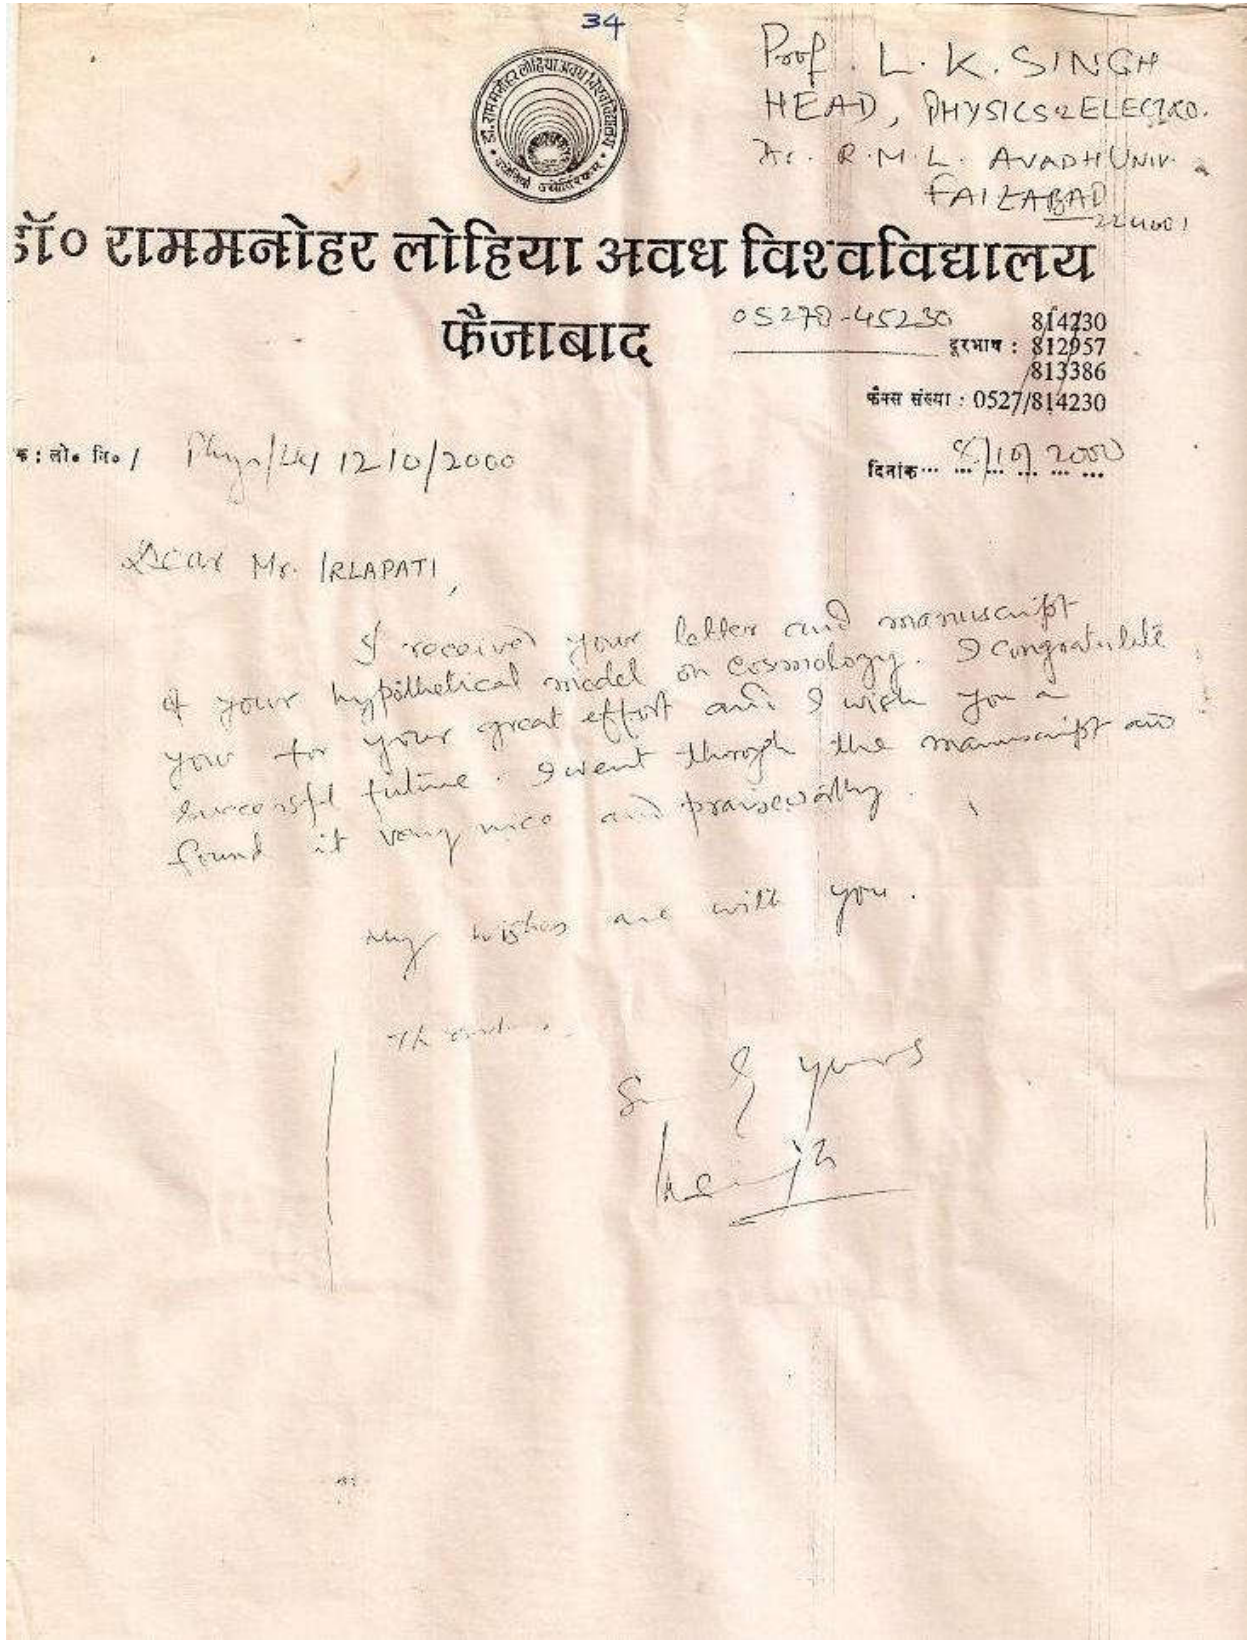 34
Prof. L. K. SINGH
HEAD, PHYSICS & ELECTRO.
Dr. R. M. L. AVADH UNIV.
FAIZABAD
224001
डॉ. राम मनोहर लोहिया अवध विश्वविद्यालय
डॉ० राममनोहर लोहिया अवध विश्वविद्यालय
फैजाबाद
05278-45230
814230
दूरभाष : 812957
813386
फैक्स संख्या : 0527/814230
क : लो० वि० / 12/10/2000
दिनांक 8/10/2000
Dear Mr. IRLAPATI,
I received your letter and manuscript
of your hypothetical model on cosmology. I congratulate
you for your great effort and I wish you a
successful future. I went through the manuscript and
found it very nice and praiseworthy.
My wishes are with you.
yours